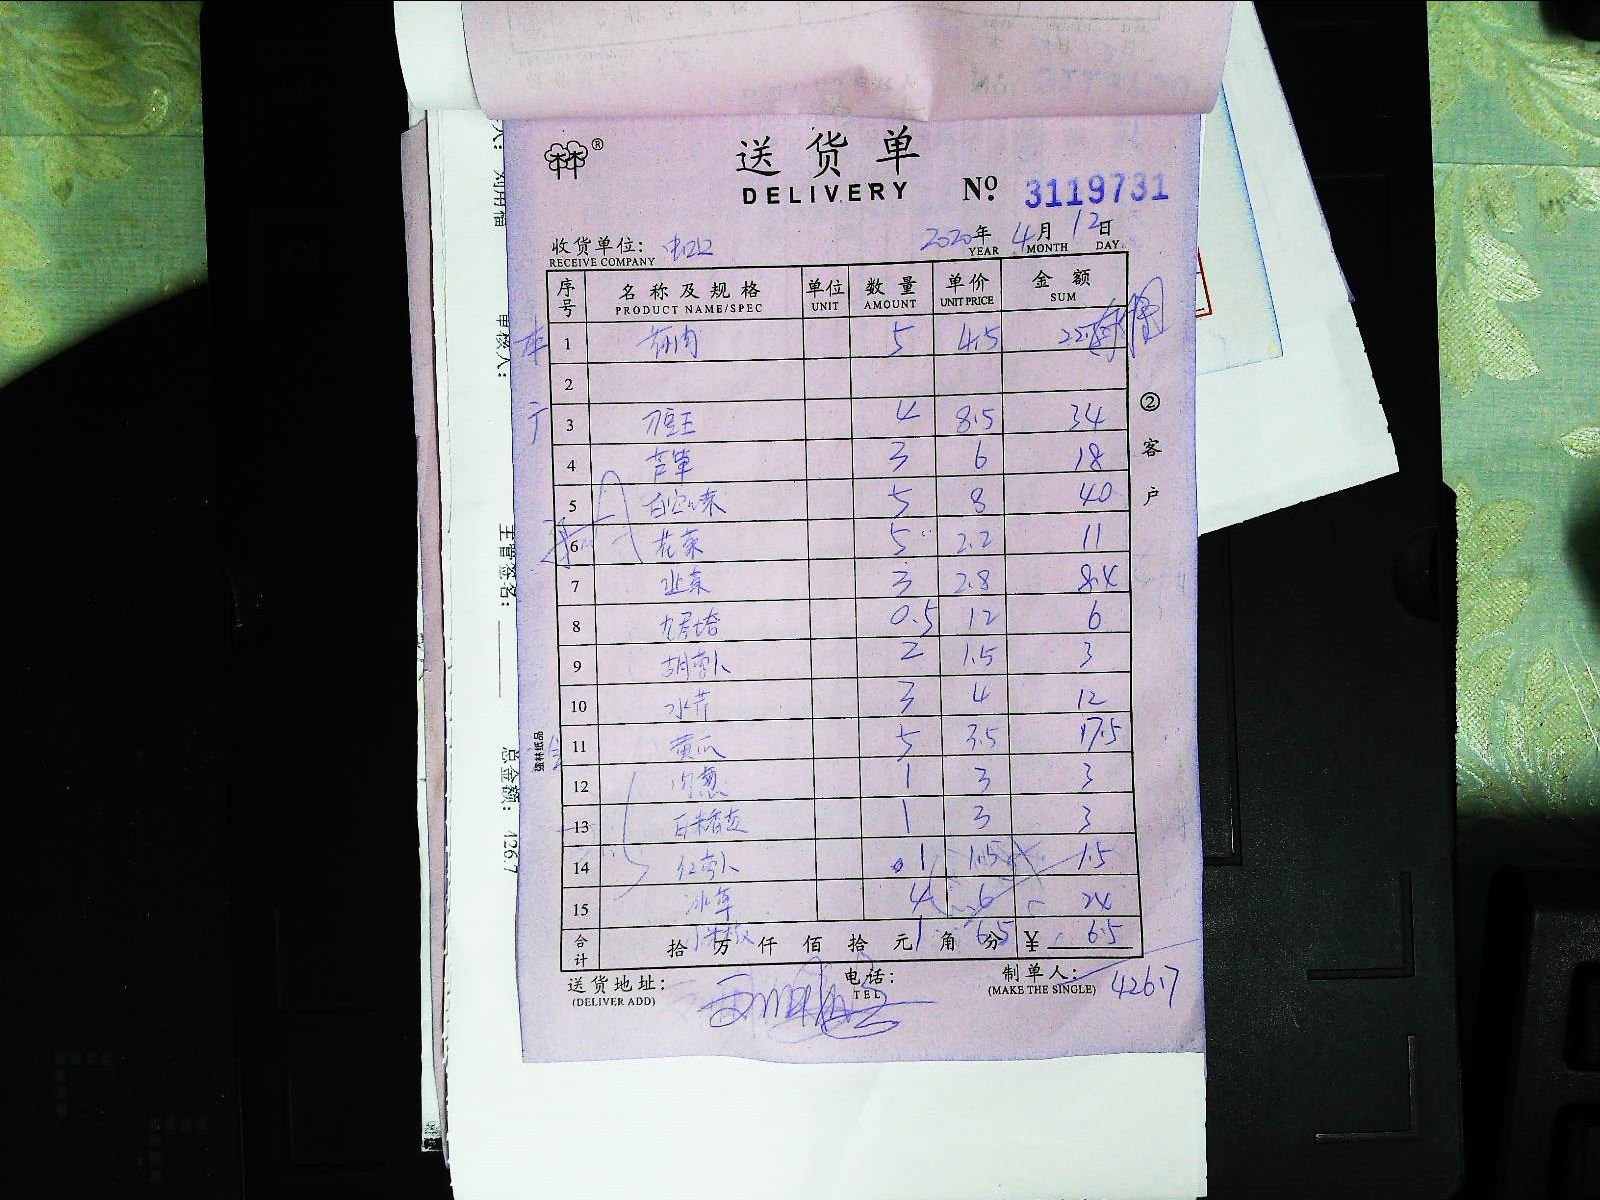 送货单
DELIVERY
№ 3119731
收货单位:
RECEIVE COMPANY
2020年 4月 12日
YEAR MONTH DAY
序号 名称及规格 单位 数量 单价 金额
PRODUCT NAME/SPEC UNIT AMOUNT UNIT PRICE SUM
1 5 4.5
2
3 刀豆王 4 8.5 34
4 芦笋 3 6 18
5 5 8 40
6 花菜 5 2.2 11
7 韭菜 3 2.8 8.4
8 九层塔 0.5 12 6
9 胡萝卜 2 1.5 3
10 水芹 3 4 12
11 黄瓜 5 3.5 17.5
12 肉葱 1 3 3
13 1 3 3
14 红萝卜 1 1.5 1.5
15 冰草 4 6 24
小米椒 1 6.5 6.5
合计 拾 万 仟 佰 拾 元 角 分 ¥
送货地址: 电话: 制单人:
(DELIVER ADD) TEL (MAKE THE SINGLE)
426.7
②客户
强林纸品
审核人:
主管签名:
总金额: 426.7